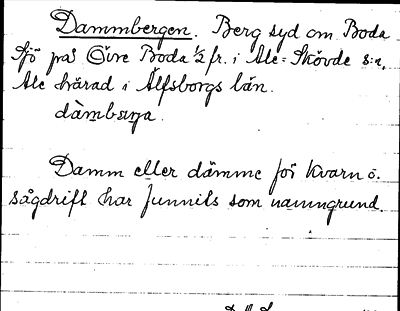 Dammbergen. Berg syd om Boda
sjö på Övre Boda ½ fr. i Ale-Skövde s:n,
Ale härad i Älfsborgs län.
dàmbæрja.
Damm eller dämme för kvarn o.
sågdrift har funnits som namngrund.